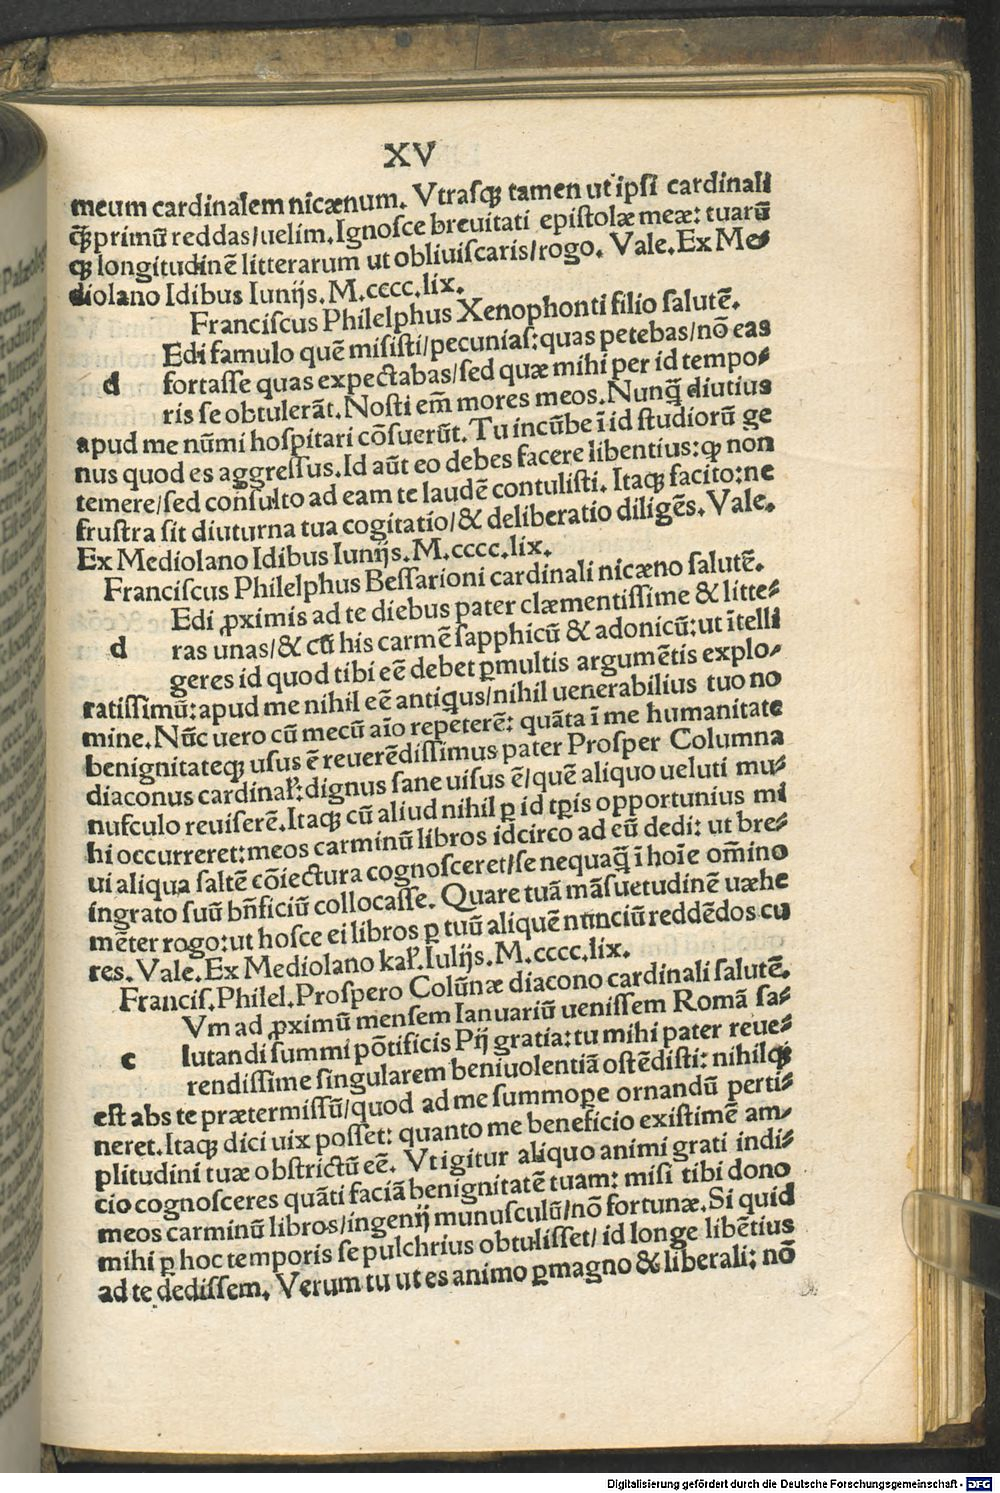 XV
meum cardinalem nicænum. Vtrasqꝫ tamen ut ipsi cardinali
q̃ꝫprimū reddas/uelim. Ignosce breuitati epistolæ meæ: tuarū
qꝫ longitudinē litterarum ut obliuiscaris/rogo. Vale. Ex Me⸗
diolano Idibus Iunijs. M.cccc.lix.
Franciscus Philelphus Xenophonti filio salutē.
Edi famulo quē misisti/pecunias: quas petebas/nō eas
d fortasse quas expectabas/sed quæ mihi per id tempo⸗
ris se obtulerāt. Nosti em̄ mores meos. Nunq̃ꝫ diutius
apud me nūmi hospitari cōsuerūt. Tu incūbe ī id studiorū ge
nus quod es aggressus. Id aūt eo debes facere libentius: qꝫ non
temere/sed consulto ad eam te laudē contulisti. Itaqꝫ facito: ne
frustra sit diuturna tua cogitatio/& deliberatio diligēs. Vale.
Ex Mediolano Idibus Iunijs. M.cccc.lix.
Franciscus Philelphus Bessarioni cardinali nicæno salutē.
Edi ꝓximis ad te diebus pater clæmentissime & litte⸗
d ras unas/& cū his carmē sapphicū & adonicū: ut ītelli
geres id quod tibi eē debet ꝑmultis argumētis explo⸗
ratissimū: apud me nihil eē antiqus/nihil uenerabilius tuo no
mine. Nūc uero cū mecū aīo repeterē: quāta ī me humanitate
benignitateqꝫ usus ē reuerēdissimus pater Prosper Columna
diaconus cardinał: dignus sane uisus ē/quē aliquo ueluti mu⸗
nufculo reuiserē. Itaqꝫ cū aliud nihil ꝑ id tꝑis opportunius mi
hi occurreret: meos carminū libros idcirco ad eū dedi: ut bre⸗
ui aliqua saltē cōiectura cognosceret/se nequaq̃ꝫ ī hoīe om̄ino
ingrato suū bn̄ficiū collocasse. Quare tuā māsuetudinē uæhe
mēter rogo: ut hosce ei libros ꝑ tuū aliquē nunciū reddēdos cu
res. Vale. Ex Mediolano kał. Iulijs. M.cccc.lix.
Francis. Philel. Prospero Colūnæ diacono cardinali salutē.
Vm ad ꝓximū mensem Ianuariū uenissem Romā sa⸗
c lutandi summi pōtificis Pij gratia: tu mihi pater reue⸗
rendissime singularem beniuolentiā ostēdisti: nihilqꝫ
est abs te prætermissū/quod ad me summoꝑe ornandū perti⸗
neret. Itaqꝫ dici uix posset: quanto me beneficio existimē am⸗
plitudini tuæ obstrictū eē. Vt igitur aliquo animi grati indi⸗
cio cognosceres quāti faciā benignitatē tuam: misi tibi dono
meos carminū libros/ingenij munusculū/nō fortunæ. Si quid
mihi ꝑ hoc temporis se pulchrius obtulisset/id longe libētius
ad te dedissem. Verum tu ut es animo ꝑmagno & liberali: nō
Digitalisierung gefördert durch die Deutsche Forschungsgemeinschaft - DFG